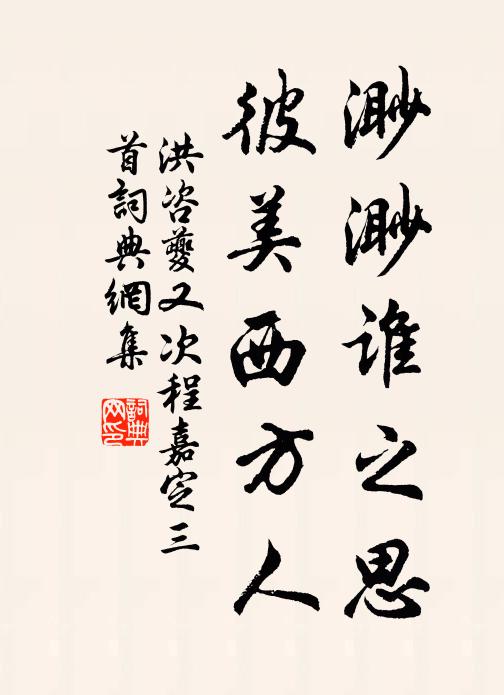 渺渺誰之思
彼美西方人
洪咨夔又次程嘉定三
首詞典網集
詞典
网印